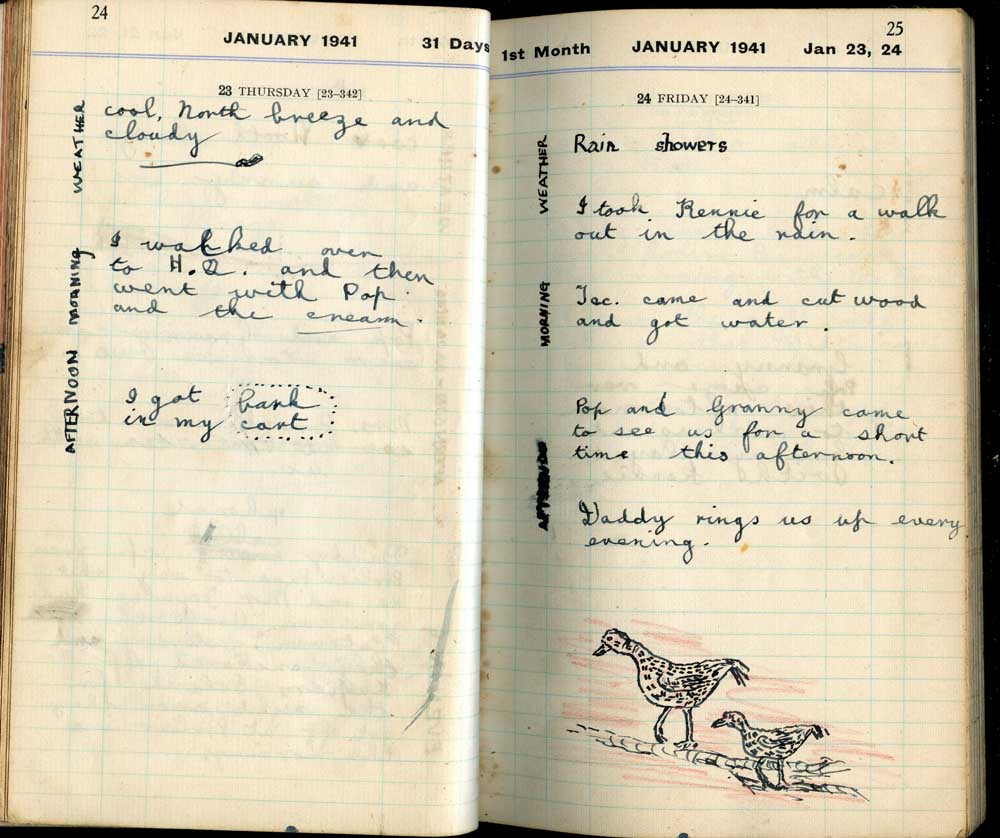 24
JANUARY 1941
31 Days
23 THURSDAY [23-342]
WEATHER
cool, North breeze and
cloudy
MORNING
I walked over
to H.Q. and then
went with Pop
and the cream.
AFTERNOON
I got bark
in my cart
25
1st Month JANUARY 1941 Jan 23, 24
24 FRIDAY [24-341]
WEATHER
Rain showers
I took Rennie for a walk
out in the rain.
MORNING
came and cut wood
and got water.
AFTERNOON
Pop and Granny came
to see us for a short
time this afternoon.
Daddy rings us up every
evening.